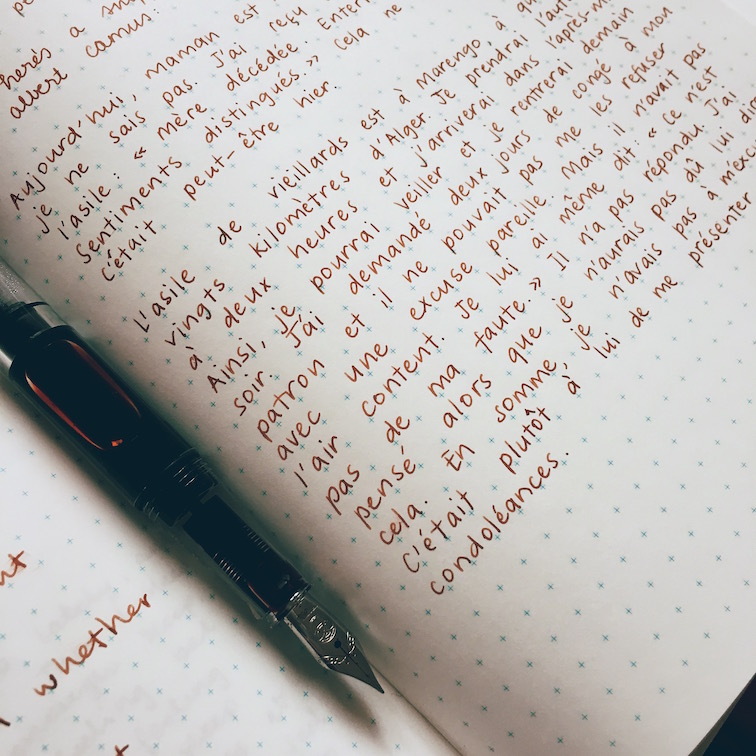 here's a
albert camus:
Aujourd'hui, maman est
je ne sais pas. J'ai reçu
l'asile: « mère décédée. Enter
Sentiments distingués. » Cela ne
C'était peut-être hier.
L'asile de vieillards est à Marengo à
vingts kilomètres d'Alger. Je prendrai l'aut
à deux heures et j'arriverai dans l'après-m
Ainsi, je pourrai veiller et je rentrerai demain
soir. J'ai demandé deux jours de congé à mon
patron et il ne pouvait pas me les refuser
avec une excuse pareille. Mais il n'avait pas
l'air content. Je lui ai même dit: « Ce n'est
pas de ma faute. » Il n'a pas répondu. J'ai
pensé alors que je n'aurais pas dû lui dir
cela. En somme, je n'avais pas à m'excu
C'était plutôt à lui de me présenter
condoléances.
whether